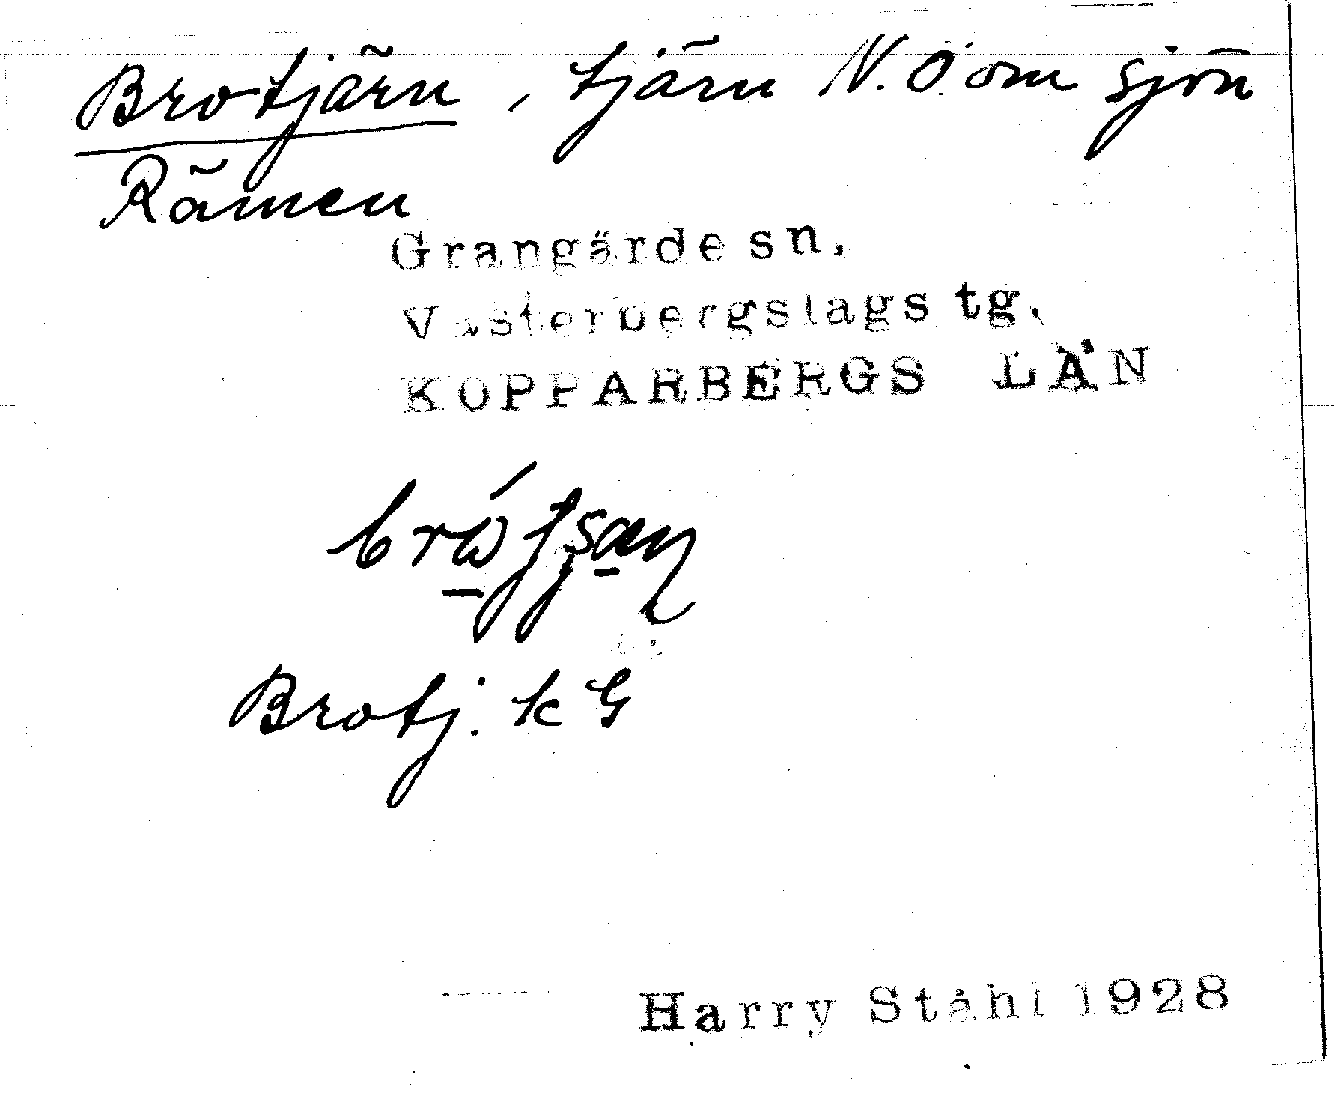 Brotjärn, tjärn N.Ö om sjön
Rämen
Grangärde sn.
Västerbergslags tg.
KOPPARBERGS LÄN
Brotj. kG
Harry Ståhl 1928